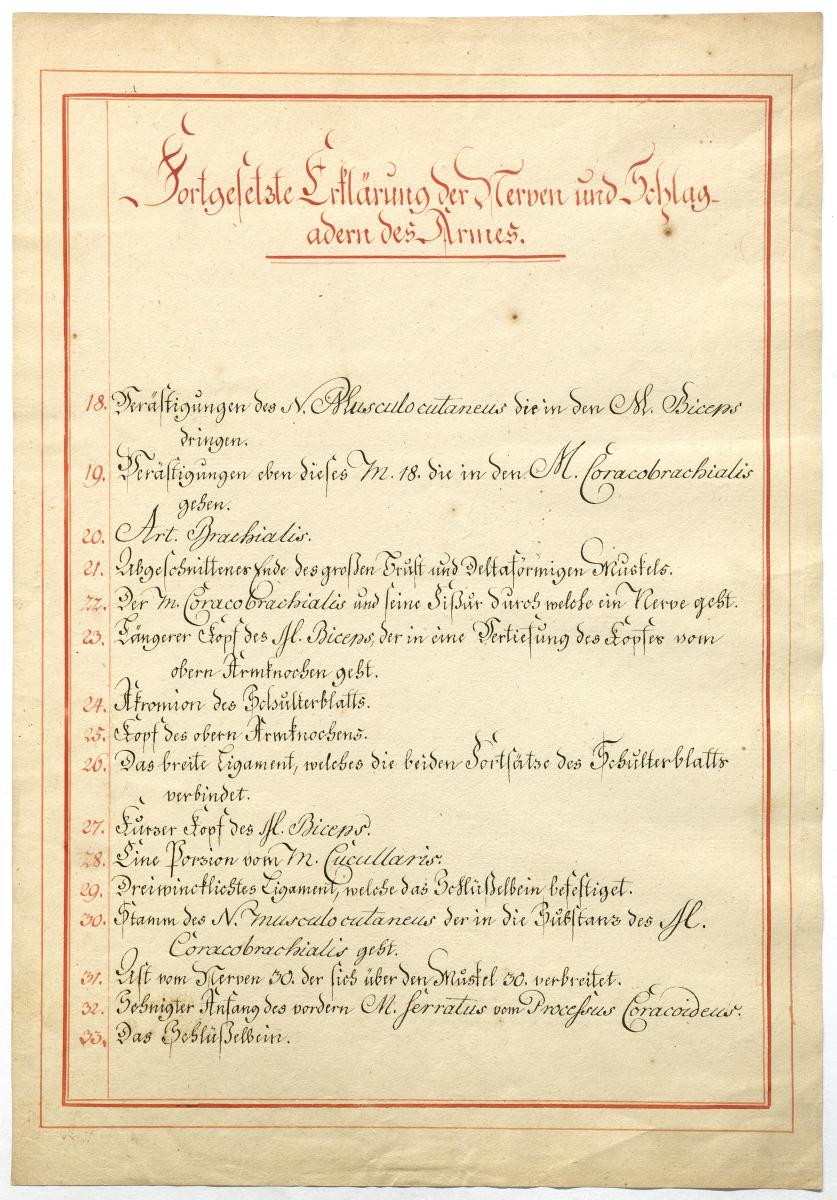 Fortgesetzte Erklärung der Nerven und Schlag-
adern des Armes.
18. Verästigungen des N. Musculocutaneus die in den M. Biceps
dringen.
19. Verästigungen eben dieses M. 18. die in den M. Coracobrachialis
gehen.
20. Art. Brachialis.
21. Abgeschnittenes Ende des großen Brust und Deltaförmigen Muskels.
22. Der M. Coracobrachialis und seine Fißur durch welche ein Nerve geht.
23. Längerer Kopf des M. Biceps, der in eine Vertiefung des Kopfes vom
obern Armknochen geht.
24. Akromion des Schulterblatts.
25. Kopf des obern Armknochens.
26. Das breite Ligament, welches die beiden Fortsätze des Schulterblatts
verbindet.
27. Kurzer Kopf des M. Biceps.
28. Eine Porzion vom M. Cucullaris.
29. Dreiwincklichtes Ligament, welche das Schlüßelbein befestiget.
30. Stamm des N. musculocutaneus der in die Substanz des M.
Coracobrachialis geht.
31. Ast vom Nerven 30. der sich über den Muskel 30. verbreitet.
32. Sehnigter Anfang des vordern M. serratus vom Processus Coracoideus.
33. Das Schlüßelbein.